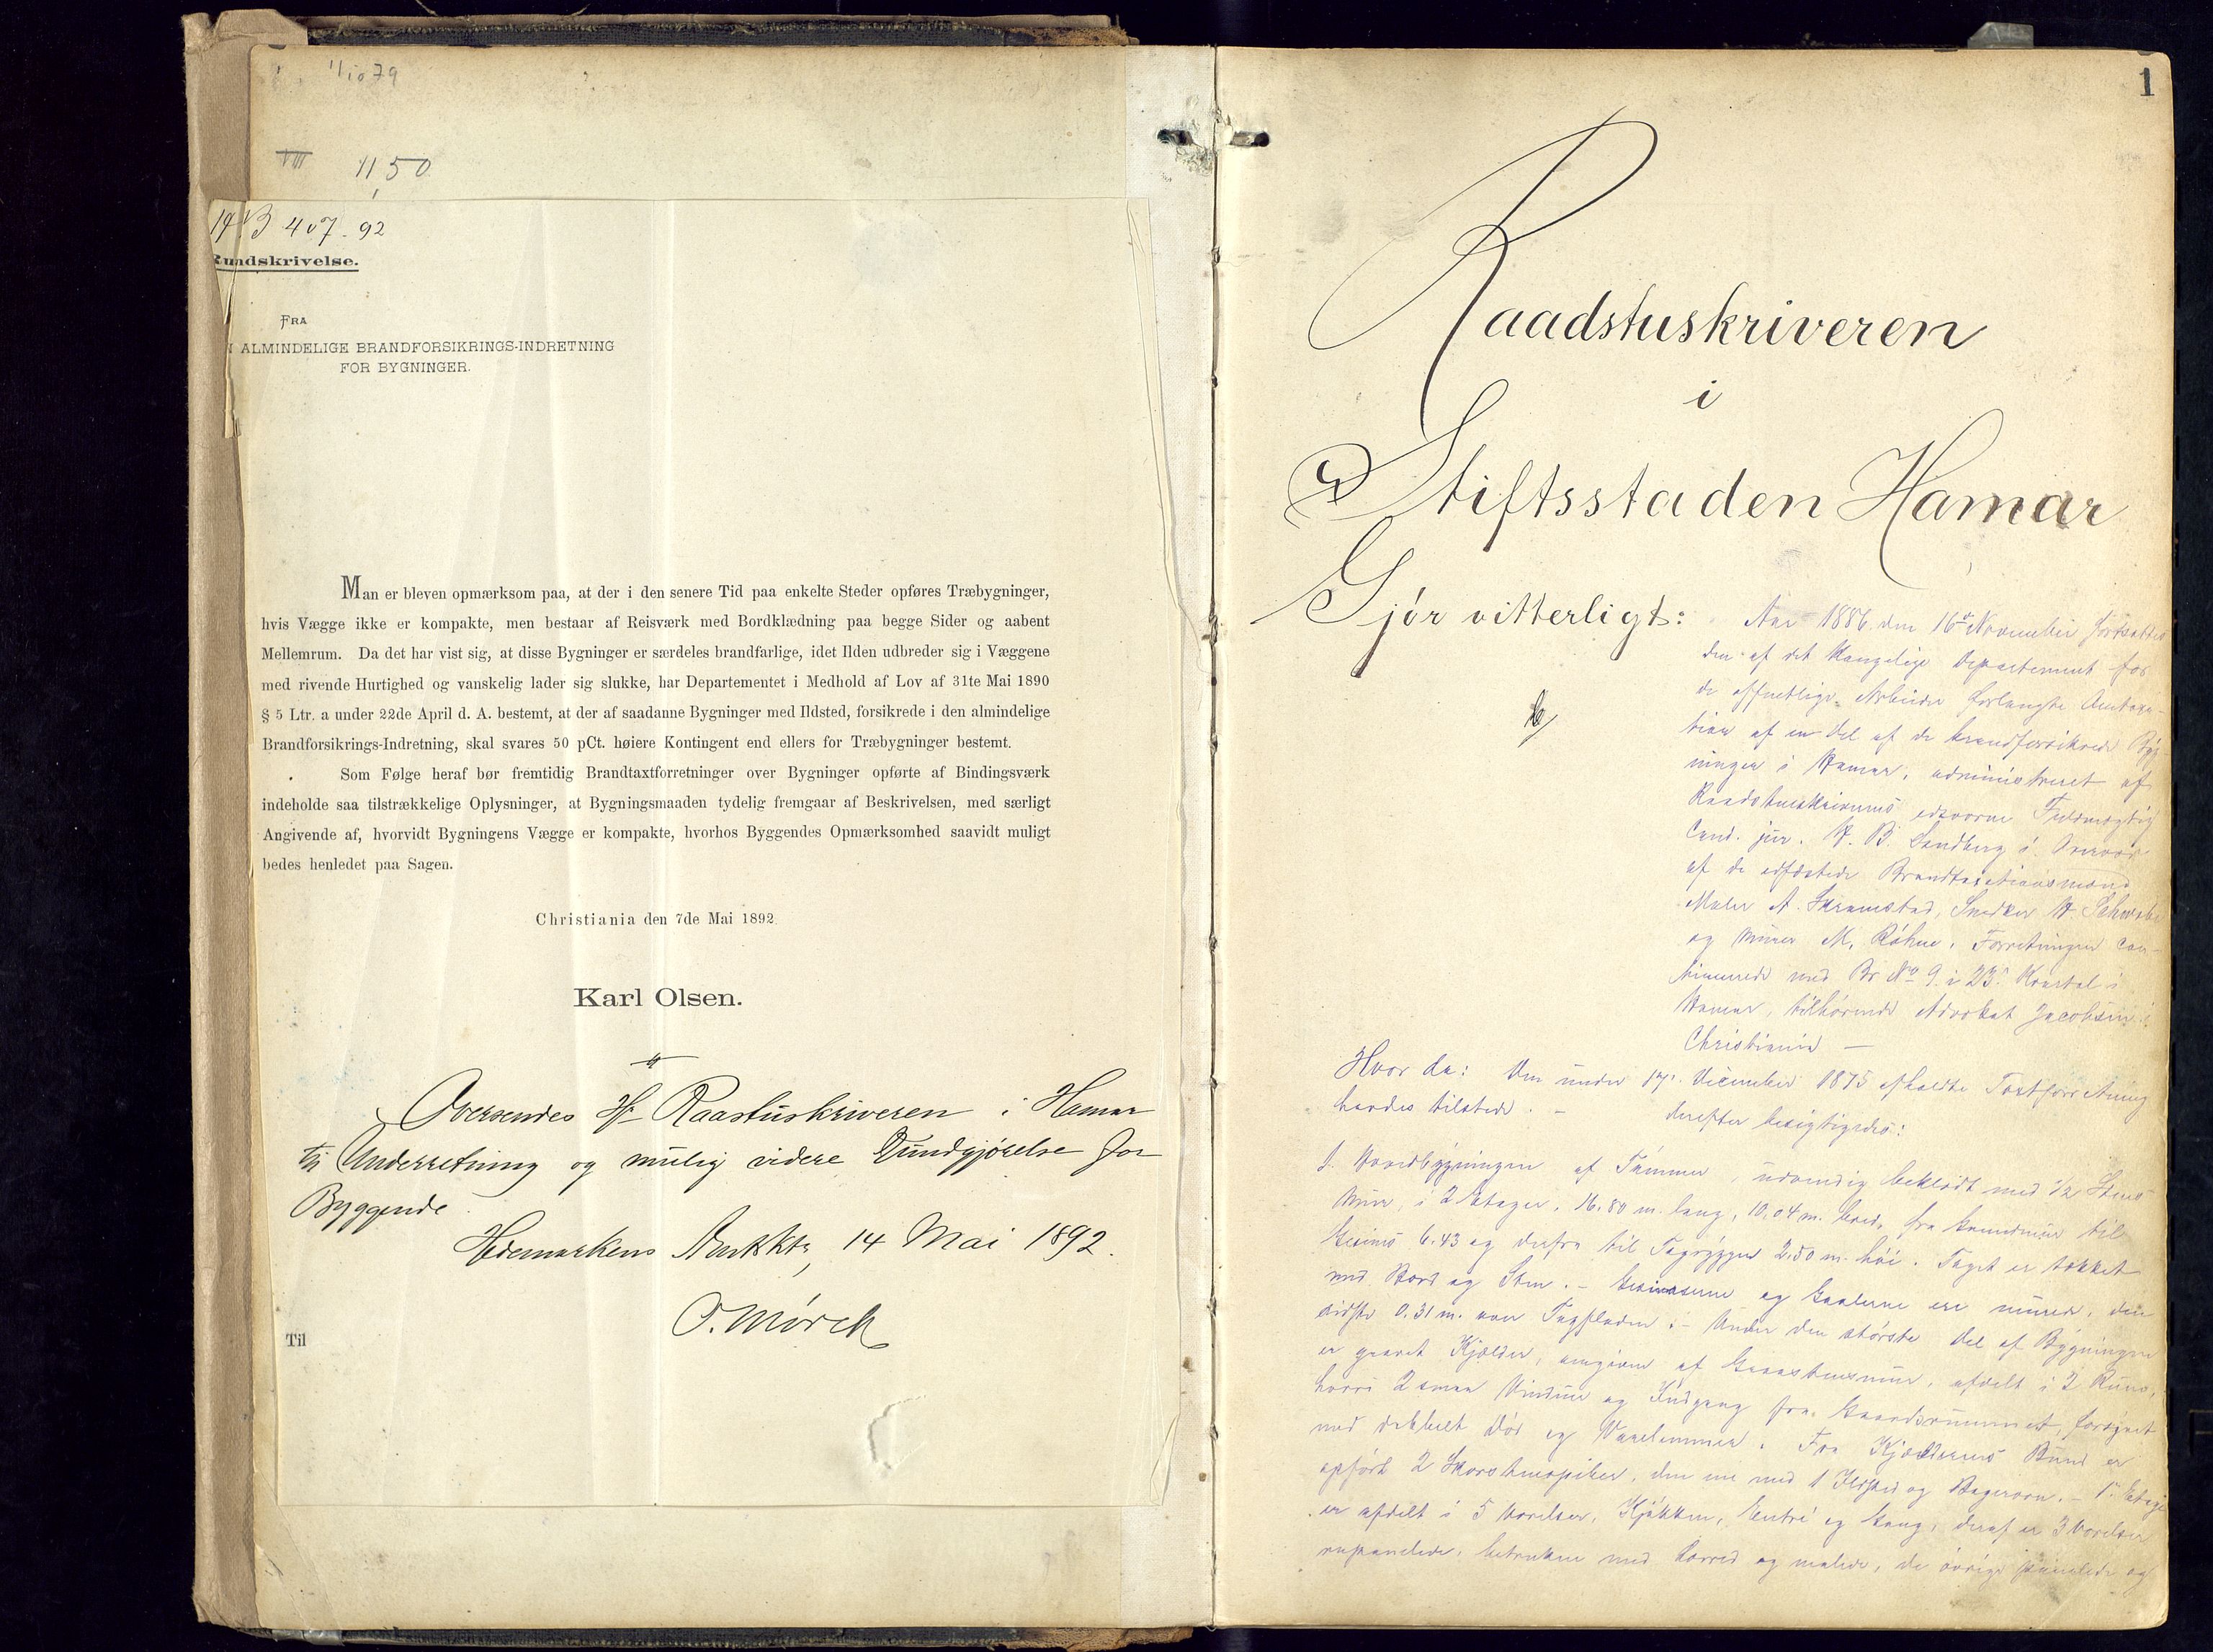 11079
VIII 1150
19B 407. 92
Rundskrivelse.
FRA
N ALMINDELIGE BRANDFORSIKRINGS-INDRETNING
FOR BYGNINGER.
Man er bleven opmærksom paa, at der i den senere Tid paa enkelte Steder opføres Træbygninger,
hvis Vægge ikke er kompakte, men bestaar af Reisværk med Bordklædning paa begge Sider og aabent
Mellemrum. Da det har vist sig, at disse Bygninger er særdeles brandfarlige, idet Ilden udbreder sig i Væggene
med rivende Hurtighed og vanskelig lader sig slukke, har Departementet i Medhold af Lov af 31te Mai 1890
§ 5 Ltr. a under 22de April d. A. bestemt, at der af saadanne Bygninger med Ildsted, forsikrede i den almindelige
Brandforsikrings-Indretning, skal svares 50 pCt. høiere Kontingent end ellers for Træbygninger bestemt.
Som Følge heraf bør fremtidig Brandtaxtforretninger over Bygninger opførte af Bindingsværk
indeholde saa tilstrækkelige Oplysninger, at Bygningsmaaden tydelig fremgaar af Beskrivelsen, med særligt
Angivende af, hvorvidt Bygningens Vægge er kompakte, hvorhos Byggendes Opmærksomhed saavidt muligt
bedes henledet paa Sagen.
Christiania den 7de Mai 1892.
Karl Olsen.
Oversendes Hr Raastuskriveren i Hamar
til Underretning og mulig videre Kundgjørelse for
Byggende
Hedemarkens Amtktr, 14 Mai 1892.
O. Mørch
Til
1
Raadstuskriveren
i
Stiftsstaden Hamar
Gjør vitterligt:
Aar 1886 den 16de November fortsattes
den af det Kongelige Departement for
de offentlige Arbeider forlangte Omtaxa-
tion af en Del af de brandforsikrede Byg-
ninger i Hamar, administreret af
Raadstueskriverens edsvorne Fuldmægtig
Cand. jur. H. B. Sandberg i Overvær
af de edfæstede Brandtaxationsmænd
Maler A. Skramstad, Snedker H. Schwabe
og Murer M. Røhne. Forretningen con-
tinuerede med Br No 9 i 23de Kvartal i
Hamar, tilhørende Advokat Jacobsen i
Christiania —
Hvor da: Den under 17. December 1875 afholdte Taxtforretning
havdes tilstede. — derefter besigtigedes:
1. Hovedbygningen af Tømmer, udvendig beklædt med 1/2 Stens
Mur, i 2 Etager, 16.80 m. lang, 10.04 m. bred, fra Grundmur til
Gesims 6.43 og derfra til Tagryggen 2.50 m. høi. Taget er tækket
med Bord og Sten. — Gesimserne og Gavlerne ere murede, de
sidste 0.31 m. over Tagfladen. — Under den største Del af Bygningen
er gravet Kjælder, omgiven af Graastensmur, afdelt i 2 Rum,
hvori 2 smaa Vinduer og Indgang fra Gaardsrummet, forsynet
med dobbelt Dør og Varelemmer. Fra Kjælderens Bund er
opført 2 Skorstenspiber, den ene med 1 Ildsted og Bagerovn. — 1ste Etage
er afdelt i 5 Værelser, Kjøkken, Entré og Gang, deraf er 3 Værelser
, betrukne med Lærred og malede, de øvrige panelede og